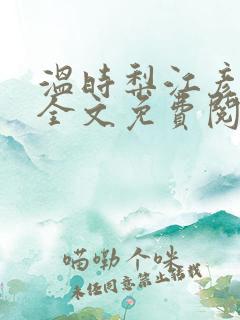 温時梨江彦
全文免費閱
喵嘞个咪
未经同意禁止转载